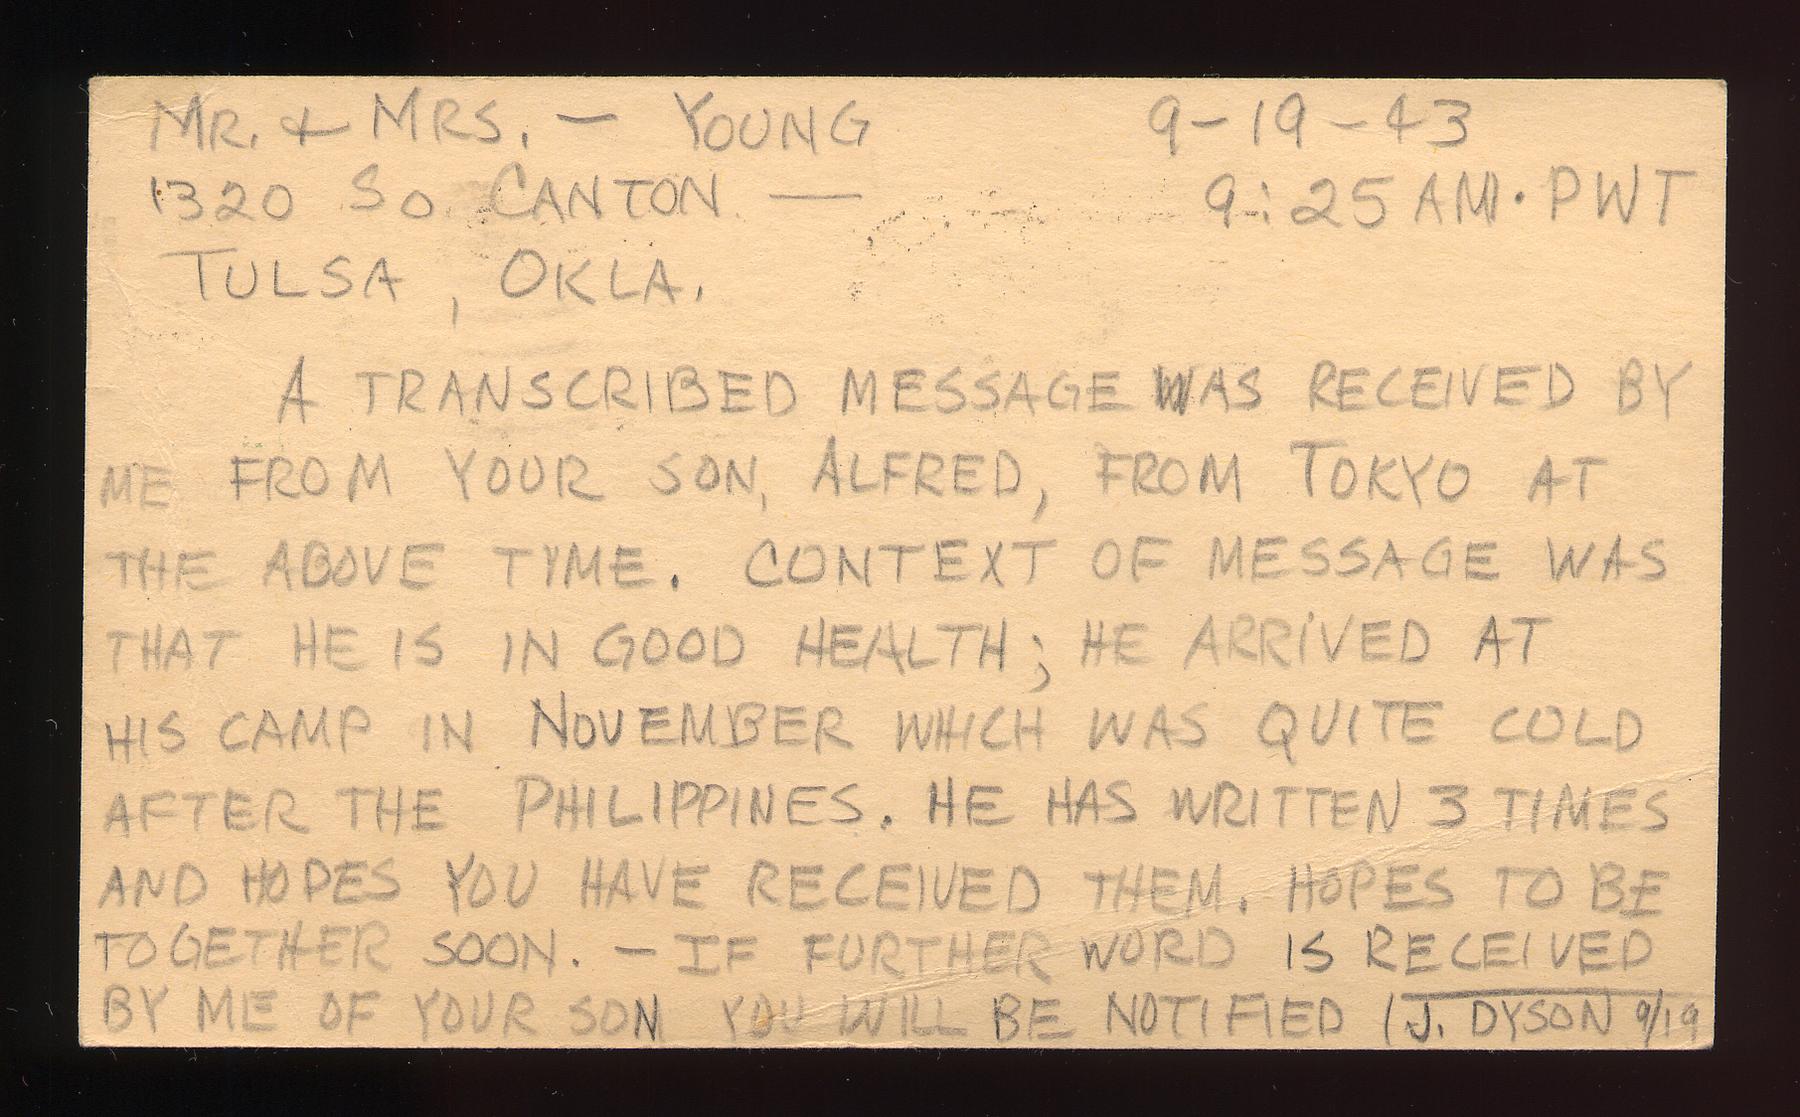 MR. & MRS. — YOUNG 9-19-43
1320 So CANTON — 9:25 AM. PWT
TULSA, OKLA.
A TRANSCRIBED MESSAGE WAS RECEIVED BY
ME FROM YOUR SON, ALFRED, FROM TOKYO AT
THE ABOVE TYME. CONTEXT OF MESSAGE WAS
THAT HE IS IN GOOD HEALTH; HE ARRIVED AT
HIS CAMP IN NOVEMBER WHICH WAS QUITE COLD
AFTER THE PHILIPPINES. HE HAS WRITTEN 3 TIMES
AND HOPES YOU HAVE RECEIVED THEM. HOPES TO BE
TOGETHER SOON. — IF FURTHER WORD IS RECEIVED
BY ME OF YOUR SON YOU WILL BE NOTIFIED (J. DYSON 9/19